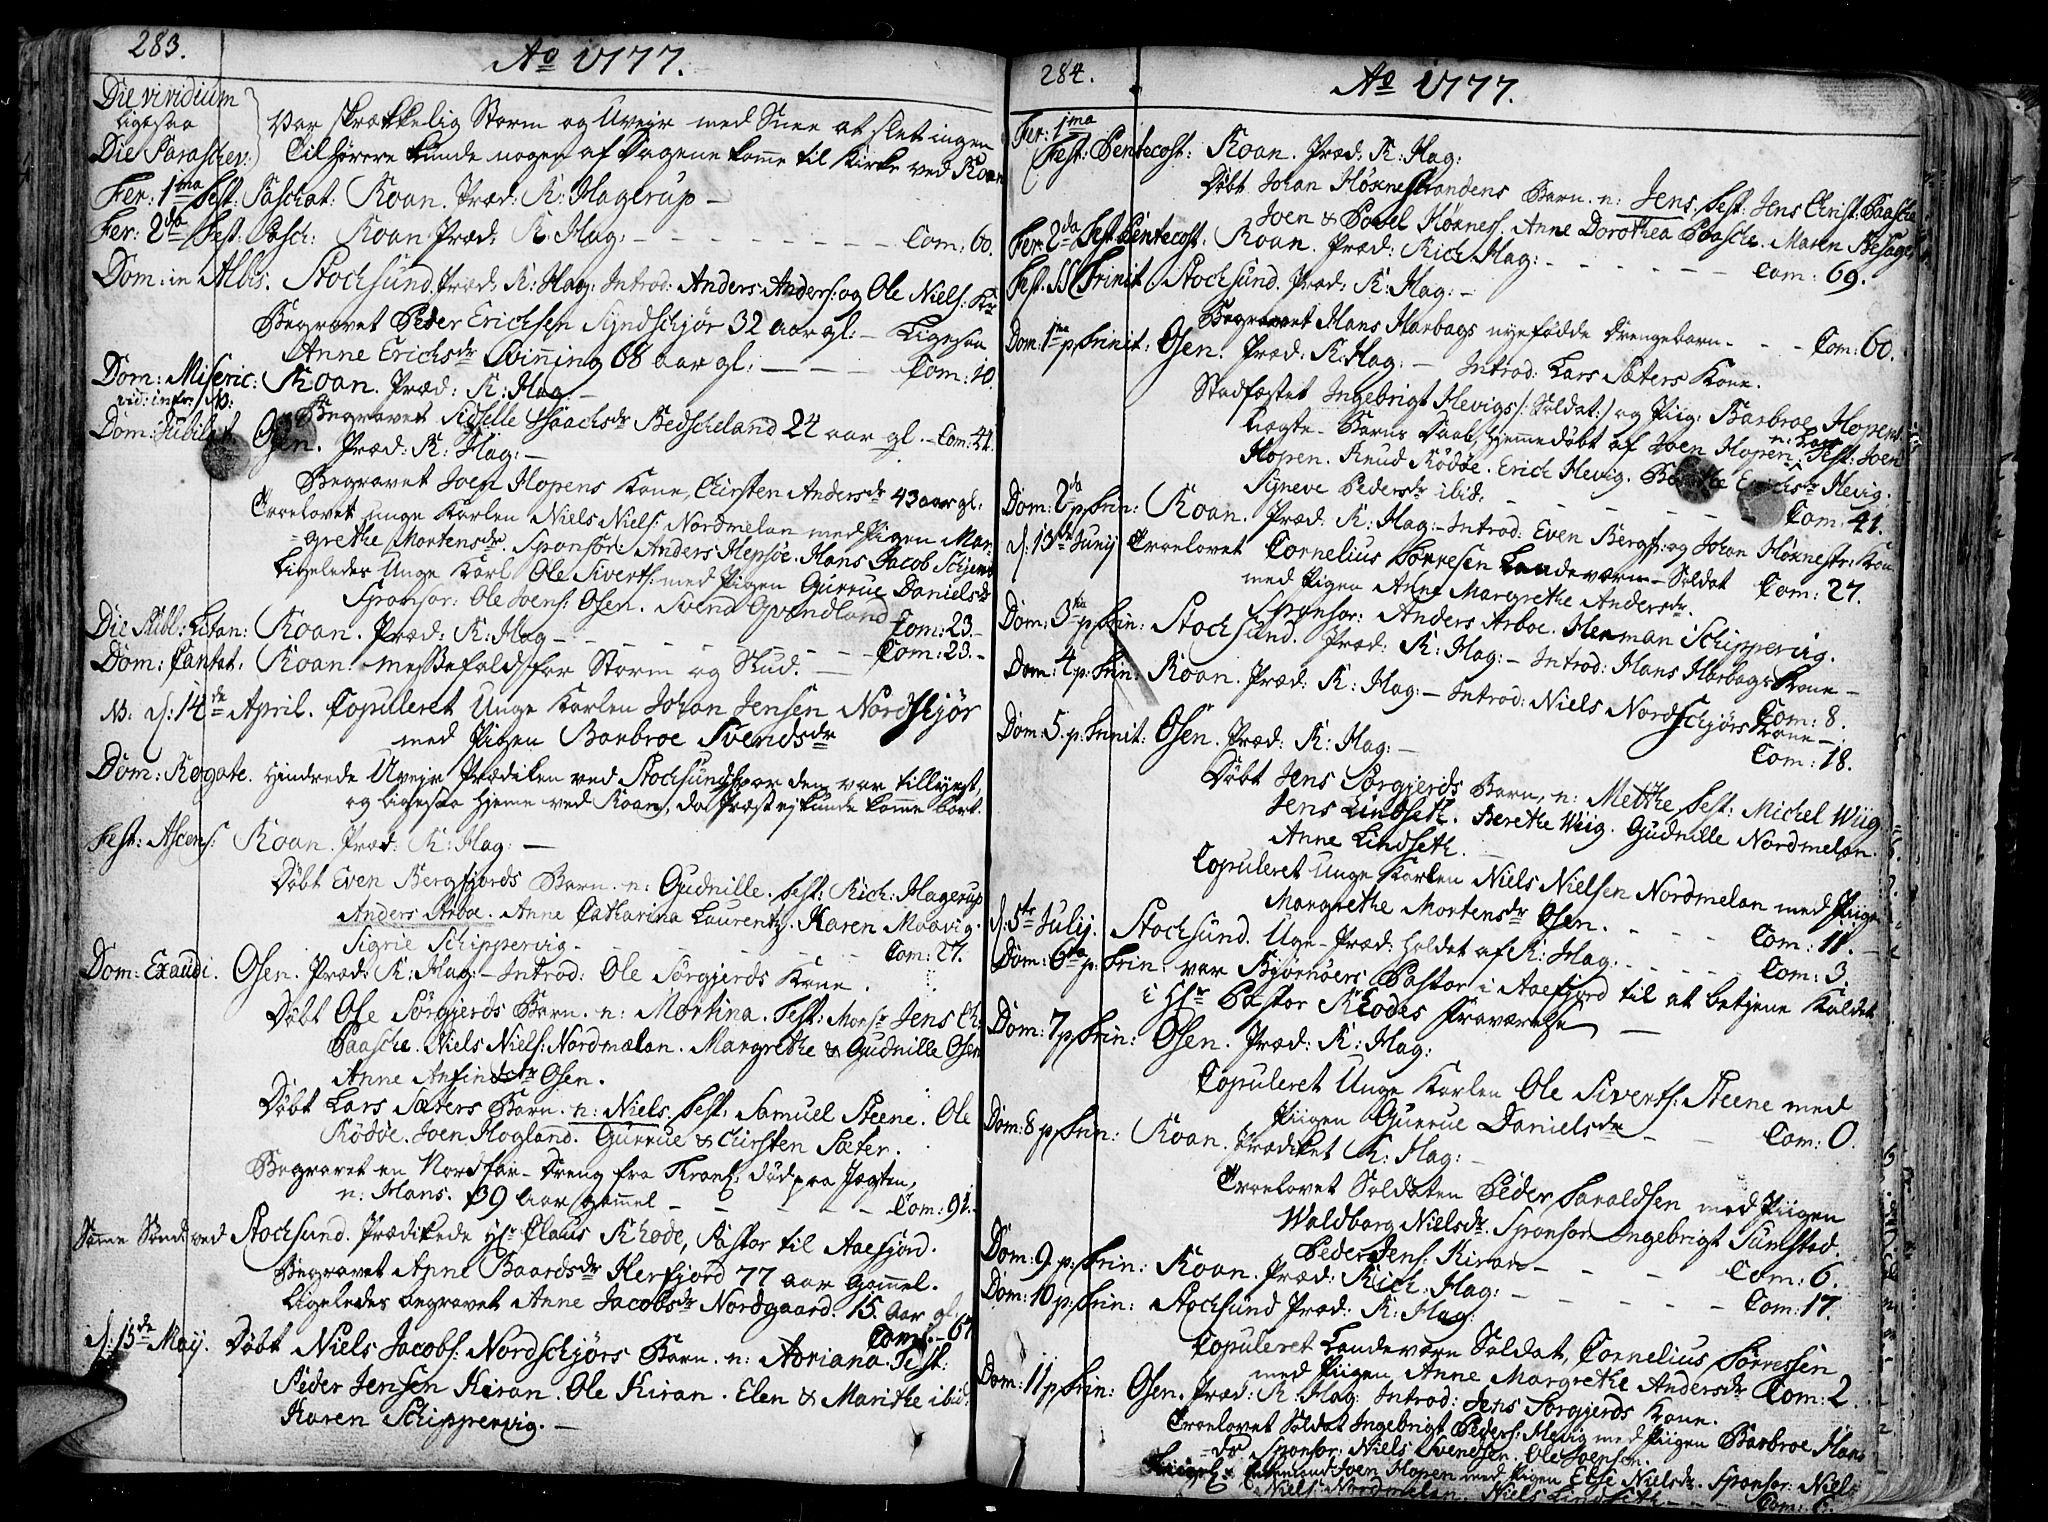 283.
Ao 1777.
Die viridium
ligesaa
Die Parascev:
Var skrækkelig Storm og Uveir med Snee at slet ingen
Tilhørere kunde nogen af Dagene komme til Kirke ved Roan
Fer: 1ma Fest: Paschat: Roan. Præd: R: Hagerup –
Fer: 2da Fest: Pasch: Roan Præd: R: Hag: – – – Com: 60.
Dom: in Albis. Stochsund. Præd: R: Hag: Introd: Anders Anders: og Ole Niels: Kr
Begravet Peder Erichsen Syndschjør 32 aar gl: – Ligesaa
Anne Erichsdr Svinning 68 aar gl: – – – Com: 10.
Dom: Miseric: Roan. Præd: R: Hag: –
vid: infr:
Begravet Sidselle Isaachsdr Bedscheland 24 aar gl. – Com: 41.
Dom: Jubilat Osen. Præd: R: Hag: –
Begravet Joen Hopens Kone, Kirsten Andersdr 43 aar gl:
Troelovet unge Karlen Niels Niels: Nordmelan med Pigen Mar-
grethe Mortensdr. Sponsor: Anders Hepsøe. Hans Jacob
Ligeledes Unge Karl Ole Siverts: med Pigen Gurrue Danielsdr
Sponsor: Ole Joens: Osen. Svend Qvandland Com: 23.
Die Litan: Roan. Præd: R: Hag – – – Com: 23. –
Dom: Cantat. Roan Messefald for Storm og Skud. –
NB: d: 14de April. Copuleret Unge Karlen Johan Jensen Nordskjør
med Pigen Barbroe Svendsdr
Dom: Rogate. hindrede Uveir Prædiken ved Stochsund hvor den var tillyst,
og ligesaa hjeme ved Roan, da Præst ej kunde komme bort.
Fest: Ascens: Roan. Præd: R: Hag: –
Døbt Even Bergfjords Barn. n: Gudnille. Test: Rich: Hagerup
Anders Arboe. Anne Catharina Laurentz. Karen Maavig.
Sigrie Schippervig. – – – – Com: 27.
Dom: Exaudi. Osen. Præd: R: Hag: – Introd: Ole Sørgjerds Kone.
Døbt Ole Sørgjerds Barn. n: Mortina. Test: Monsr Jens Ch:
Paasche. Niels Niels: Nordmelan. Margrethe & Gudnille Osen
Anne Anfindsdr Osen.
Døbt Lars Sæters Barn. n: Niels. Test: Samuel Steene. Ole
Rødøe. Joen Hogland. Gurrue & Kirsten Sæter.
Begravet en Nordfar-Dreng fra død paa Jægten,
n: Hans. 39 aar gammel – – – – Com: 91.
Samme Sønd: ved Stochsund. Prædikede Hr Claus Rhode, Pastor til Aaefjord.
Begravet Anne Baardsdr Herfjord 77 aar gammel.
Ligeledes begravet Anne Jacobsdr Nordgaard. 15. aar gl:
Com: – 67.
d: 15de Maij. Døbt Niels Jacobs: Nordschjørs Barn. n: Adriana. Test:
Peder Jensen Kiran. Ole Kiran. Elen & Marithe ibid:
Karen Schippervig. –
284.
Ao 1777.
Fer: 1ma
Fest: Pentecost: Roan. Præd: R: Hag:
Døbt Johan Hoxnestrandens Barn. n: Jens. Test: Jens Christ: Paasche
Joen & Povel Hoxnes. Anne Dorothea Paasche. Maren Besager
Fer: 2da Fest Pentecost. Roan. Præd: Rich: Hag: – – – Com: 69.
Fest: SS Trinit Stochsund. Præd: R: Hag: –
Begravet Hans Harbags nyefødde Drengebarn. – – – Com: 60.
Dom: 1ma p: Trinit: Osen. Præd: R: Hag: – Introd: Lars Sæters Kone.
Stadfæstet Ingebrigt Hevigs /: Soldat :/ og Piig: Barbroe Hopens
Uægte-Barns Daab, hjemmedøbt af Joen Hopen. Test: Joen
Hopen. Knud Rødøe. Erich Hevig. Erichsdr Hevig.
Syneve Pedersdr ibid: – – – – Com: 41.
Dom: 2da p: Trin: Roan. Præd: R: Hag: – Introd: Even Bergf: og Johan Hoxnestr: Kon
d: 13de Junij Troelovet Cornelius Tørresen Landeværn-Soldat Com: 27.
med Pigen Anne Margrethe Andersdr.
Sponsor: Anders Arboe. Herman Schippervig.
Dom: 3tia p: Trin: Stochsund. Præd: R: Hag: – Introd: Hans Harbags Kone –
Com: 8.
Dom: 4 p: Trin: Roan. Præd: R: Hag: – Introd: Niels Nordschjørs Kone –
Com: 18.
Dom: 5. p: Trinit: Osen. Præd: R: Hag: –
Døbt Jens Sørgjerds Barn, n: Metthe Test: Michel Wiig
Jens Lindseth. Berethe Wiig. Gudnille Nordmelan.
Anne Lindseth. –
Copuleret Unge Karlen Niels Nielsen Nordmelan med Pige
Margrethe Mortensdr Osen. – – – Com: 11. –
d: 5te Julij. Stochsund. Uge-Præd: holdet af R: Hag: – – – Com: 3.
Dom: 6ta p: Trin: var Bjørnøers Pastor i Aaefjord til at betjene Kaldet
i Hr Pastor Rhodes Fraværelse –
Dom: 7 p: Trin: Osen. Præd: R: Hag:
Copuleret Unge Karlen Ole Siverts: Steene med
Piigen Gurrue Danielsdr – – Com: 0.
Dom: 8 p: Trin: Roan. Prædiket R: Hag: –
Troelovet Soldaten Peder Haraldsen med Piigen
Waldborg Nielsdr. Sponsor Ingebrigt Sumstad.
Peder Jens: Kiran – – – – Com: 6.
Dom: 9. p: Trin: Roan. Præd: Rich: Hag: – – – – Com: 17.
Dom: 10 p: Trin: Stochsund Præd: R: Hag:
Copuleret Landeværn Soldat, Cornelius Tørressen
med Piigen Anne Margrethe Andersdr Com: 2.
Dom: 11 p Trin: Osen. Præd: R: Hag: Introd: Jens Sørgjerds Kone.
Troelovet Soldat Ingebrigt Peders: Hevig med Piigen Barbroe Hans
dr Sponsor: Niels Svendsen. Ole Joensen.
Joen Hopen med Pigen Else Nielsdr. Sponsor: Niels
Niels: Nordmelan. Niels Lindseth – – Com: 6.